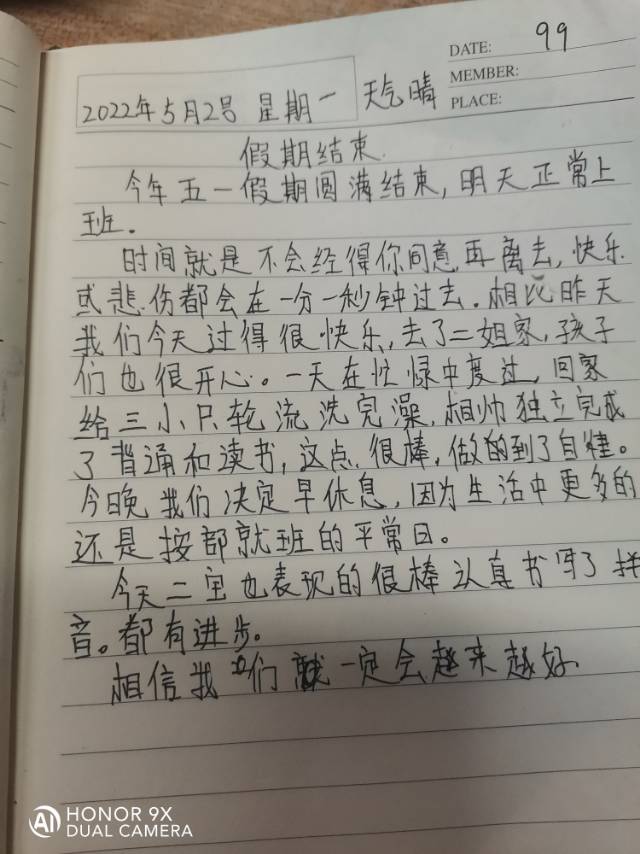 DATE: 99
MEMBER:
PLACE:
2022年5月2号 星期一 天气晴
假期结束.
今年五一假期圆满结束,明天正常上
班.
时间就是不会经得你同意再离去,快乐
或悲伤都会在一分一秒钟过去.相比昨天
我们今天过得很快乐,去了二姐家,孩子
们也很开心。一天在忙碌中度过,回家
给三小只轮流洗完澡,相帅独立完成
了背诵和读书,这点很棒,做的到了自律。
今晚我们决定早休息,因为生活中更多的
还是按部就班的平常日。
今天二宝也表现的很棒认真书写了拼
音。都有进步。
相信我们就一定会越来越好.
AI HONOR 9X
DUAL CAMERA